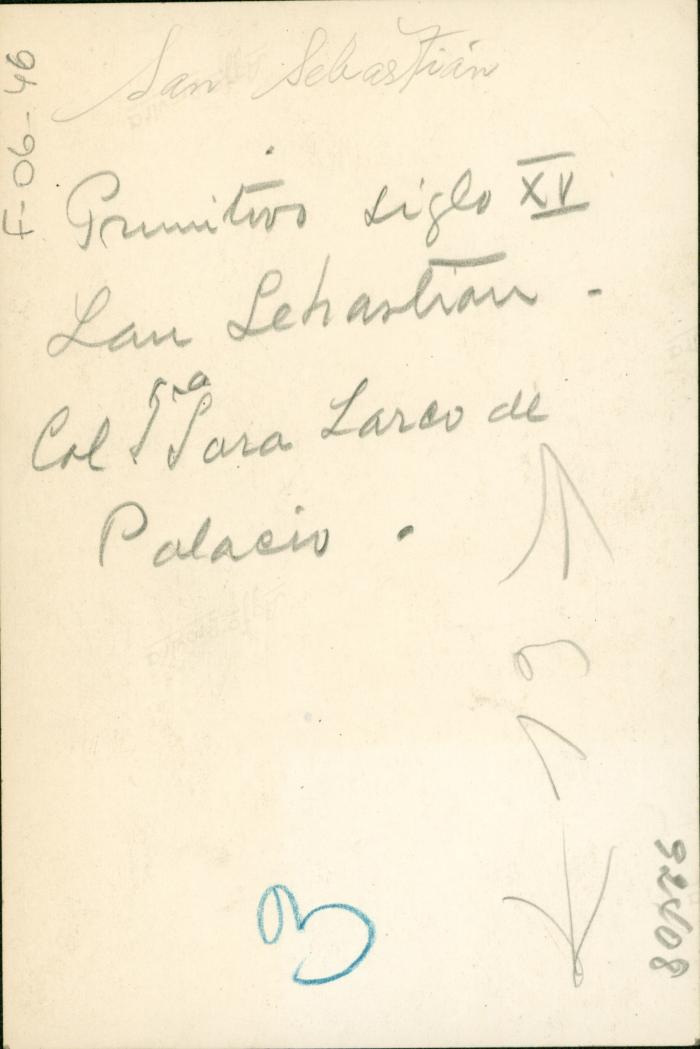 San Sebastián
F-06-46
Primitivo siglo XV
San Sebastian -
Col Sra Sara Larco de
Palacio.
19
3